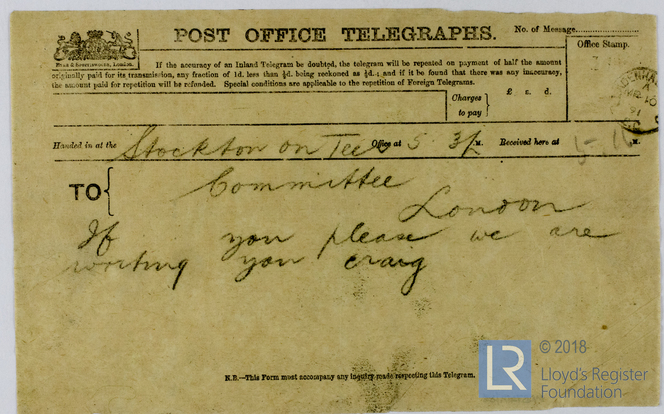 POST OFFICE TELEGRAPHS.
No. of Message
Office Stamp.
If the accuracy of an Inland Telegram be doubted, the telegram will be repeated on payment of half the amount
originally paid for its transmission, any fraction of 1d. less than ½d. being reckoned as ½d.; and if it be found that there was any inaccuracy,
the amount paid for repetition will be refunded. Special conditions are applicable to the repetition of Foreign Telegrams.
Charges to pay
£ s. d.
Handed in at the Stockton on Tees Office at 5 M. Received here at M.
TO Committee
London
If you please we are
writing you Craig
N.B.—This Form must accompany any inquiry made respecting this Telegram.
LR © 2018
Lloyd's Register
Foundation